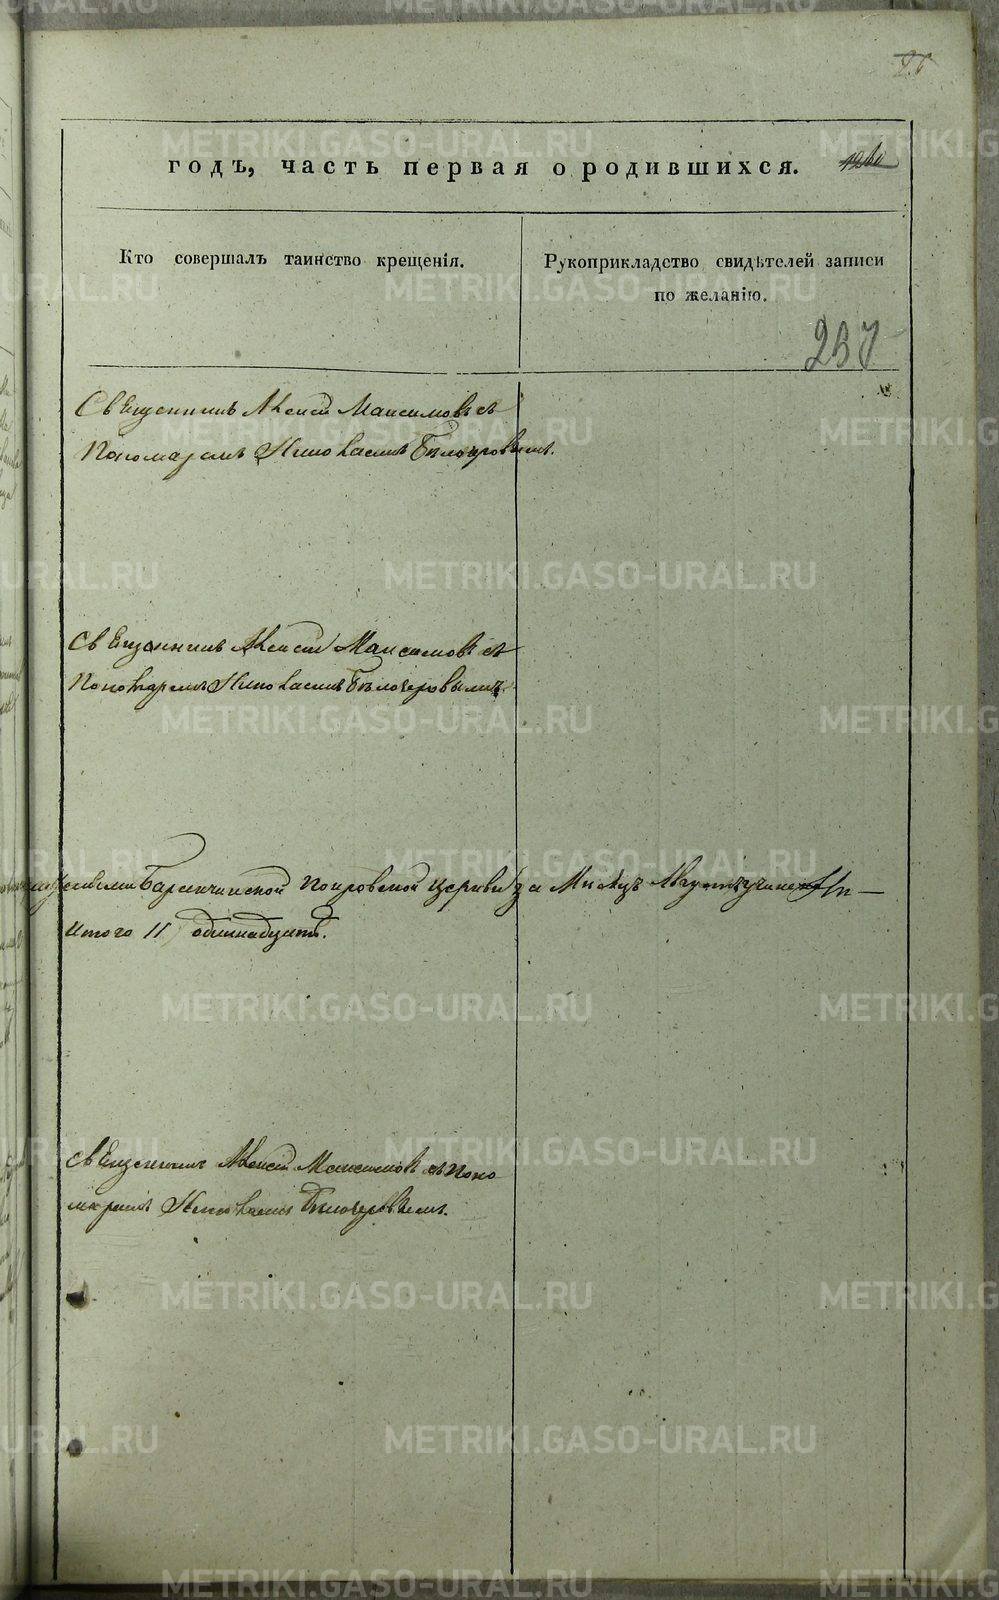 годъ, часть первая о родившихся.
Кто совершалъ таинство крещенія.
Рукоприкладство свидѣтелей записи
по желанію.
237
Священникъ Алексій Максимовъ съ
Пономаремъ Николаемъ Бѣлозеровымъ.
Священникъ Алексій Максимовъ съ
Пономаремъ Николаемъ Бѣлозеровымъ
Баранчинской Покровской церкви за Мѣсяцъ Августъ
Итого 11 одиннадцать.
Священникъ Алексій Максимовъ съ Поно
маремъ Николаемъ Бѣлозеровымъ.
METRIKI.GASO-URAL.RU